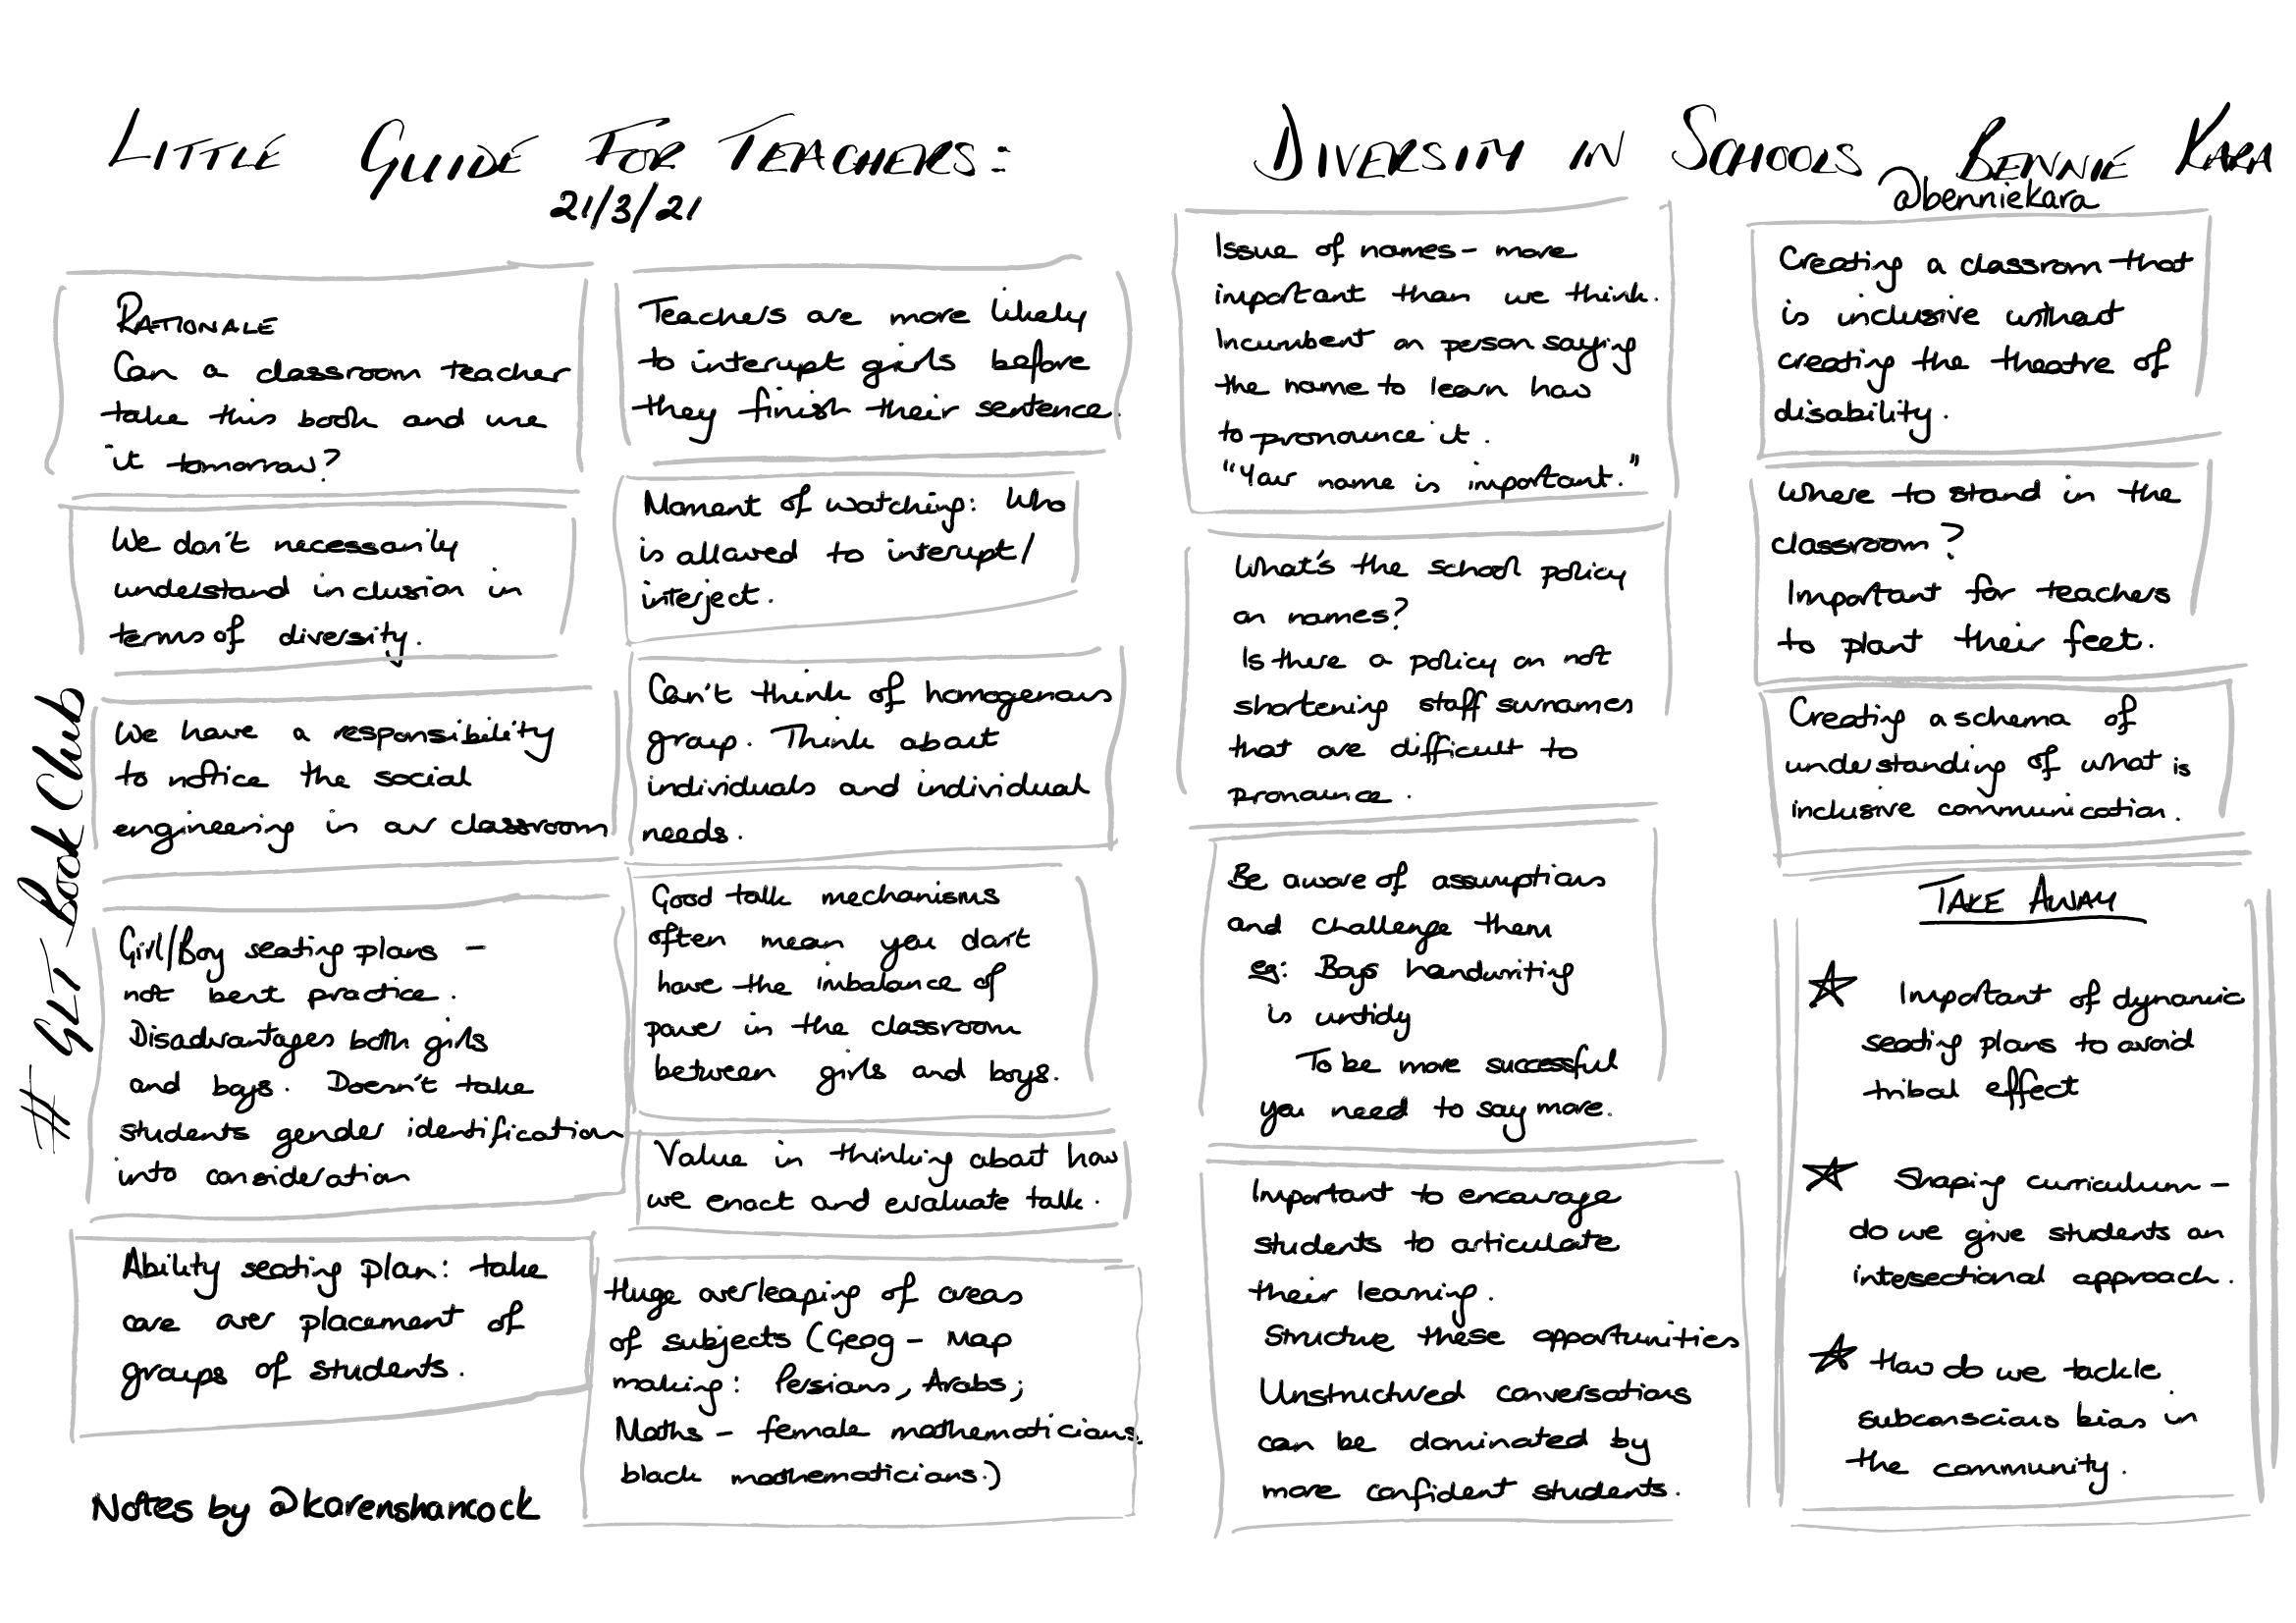 LITTLE GUIDE FOR TEACHERS: DIVERSITY IN SCHOOLS BENNIE KARA
21/3/21
@benniekara
RATIONALE
Can a classroom teacher
take this book and use
it tomorrow?
We don't necessarily
understand inclusion in
terms of diversity.
We have a responsibility
to notice the social
engineering in our classroom
Girl/Boy seating plans -
not best practice.
Disadvantages both girls
and boys. Doesn't take
students gender identification
into consideration
Ability seating plan: take
care over placement of
groups of students.
Notes by @karenshancock
# GLT Book Club
Teachers are more likely
to interupt girls before
they finish their sentence.
Moment of watching: Who
is allowed to interupt/
interject.
Can't think of homogenous
group. Think about
individuals and individual
needs.
Good talk mechanisms
often mean you don't
have the imbalance of
power in the classroom
between girls and boys.
Value in thinking about how
we enact and evaluate talk.
Huge overleaping of areas
of subjects (Geog - Map
making: Persians, Arabs;
Maths - female mathematicians
black mathematicians.)
Issue of names - more
important than we think.
Incumbent on person saying
the name to learn how
to pronounce it.
"Your name is important."
What's the school policy
on names?
Is there a policy on not
shortening staff surnames
that are difficult to
pronounce.
Be aware of assumptions
and challenge them
eg: Boys handwriting
is untidy
To be more successful
you need to say more.
Important to encourage
students to articulate
their learning.
Structure these opportunities
Unstructured conversations
can be dominated by
more confident students.
Creating a classroom that
is inclusive without
creating the theatre of
disability.
Where to stand in the
classroom?
Important for teachers
to plant their feet.
Creating a schema of
understanding of what is
inclusive communication.
TAKE AWAY
Important of dynamic
seating plans to avoid
tribal effect
Shaping curriculum -
do we give students an
intersectional approach.
How do we tackle
subconscious bias in
the community.